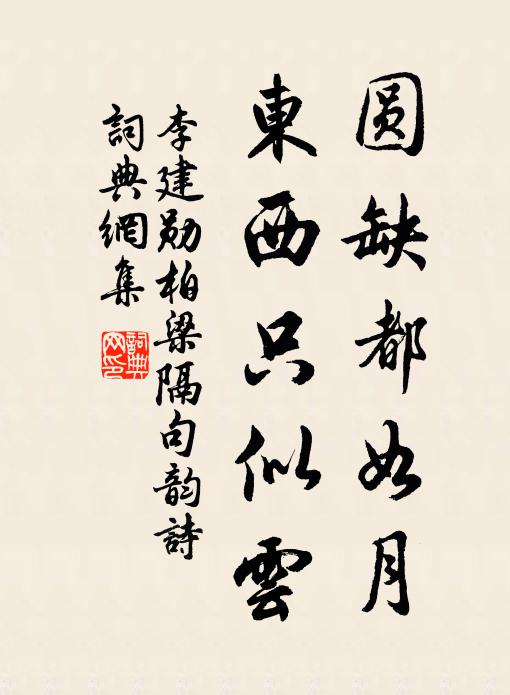 圆缺都如月
東西只似雲
李建勋柏梁隔句韵詩
詞典網集
詞典网印